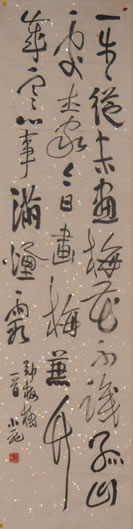 一生從未畫梅花不識孤山
處士家今日畫梅兼竹
歲寒心事滿煙霞
鄭板橋
一首